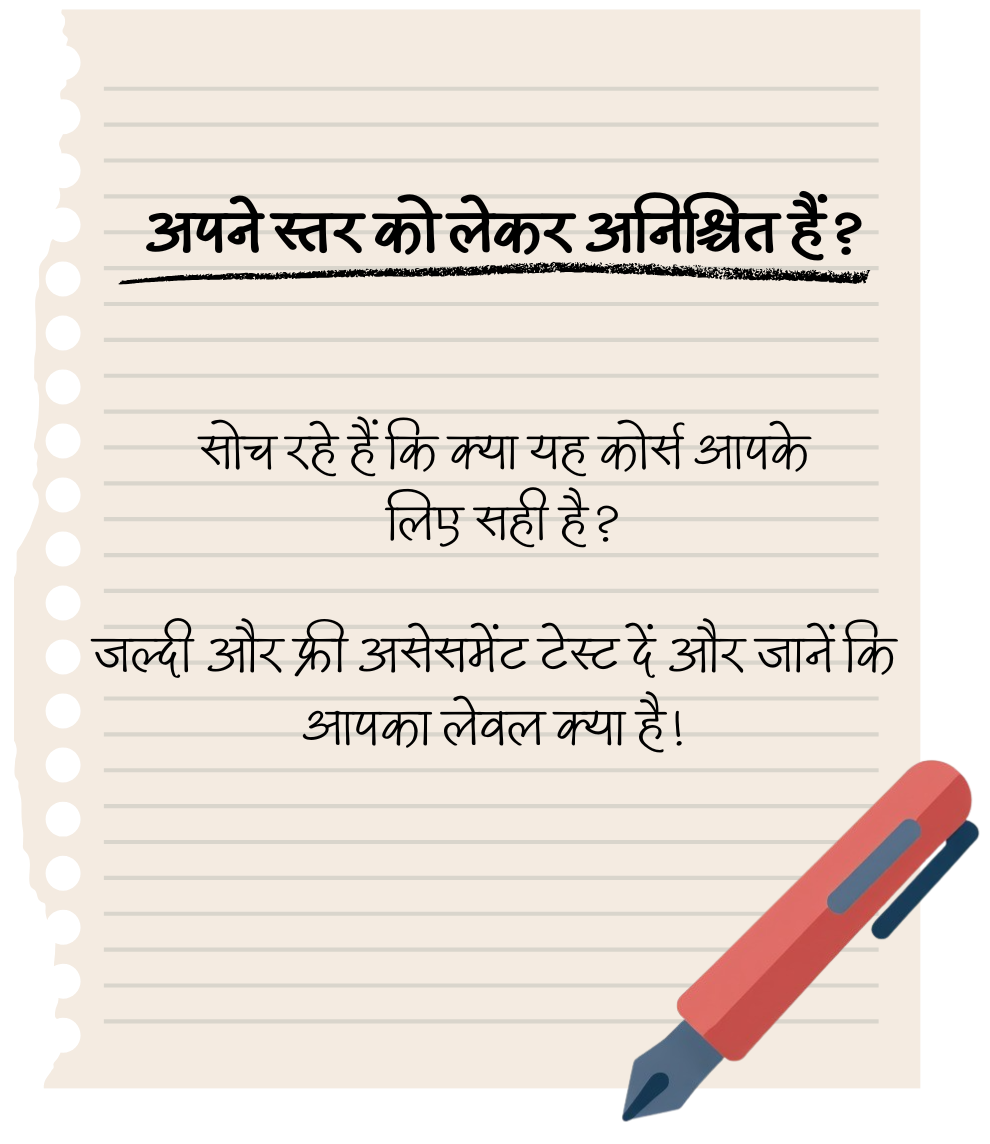 अपने स्तर को लेकर अनिश्चित हैं?
सोच रहे हैं कि क्या यह कोर्स आपके
लिए सही है?
जल्दी और फ्री असेसमेंट टेस्ट दें और जानें कि
आपका लेवल क्या है!